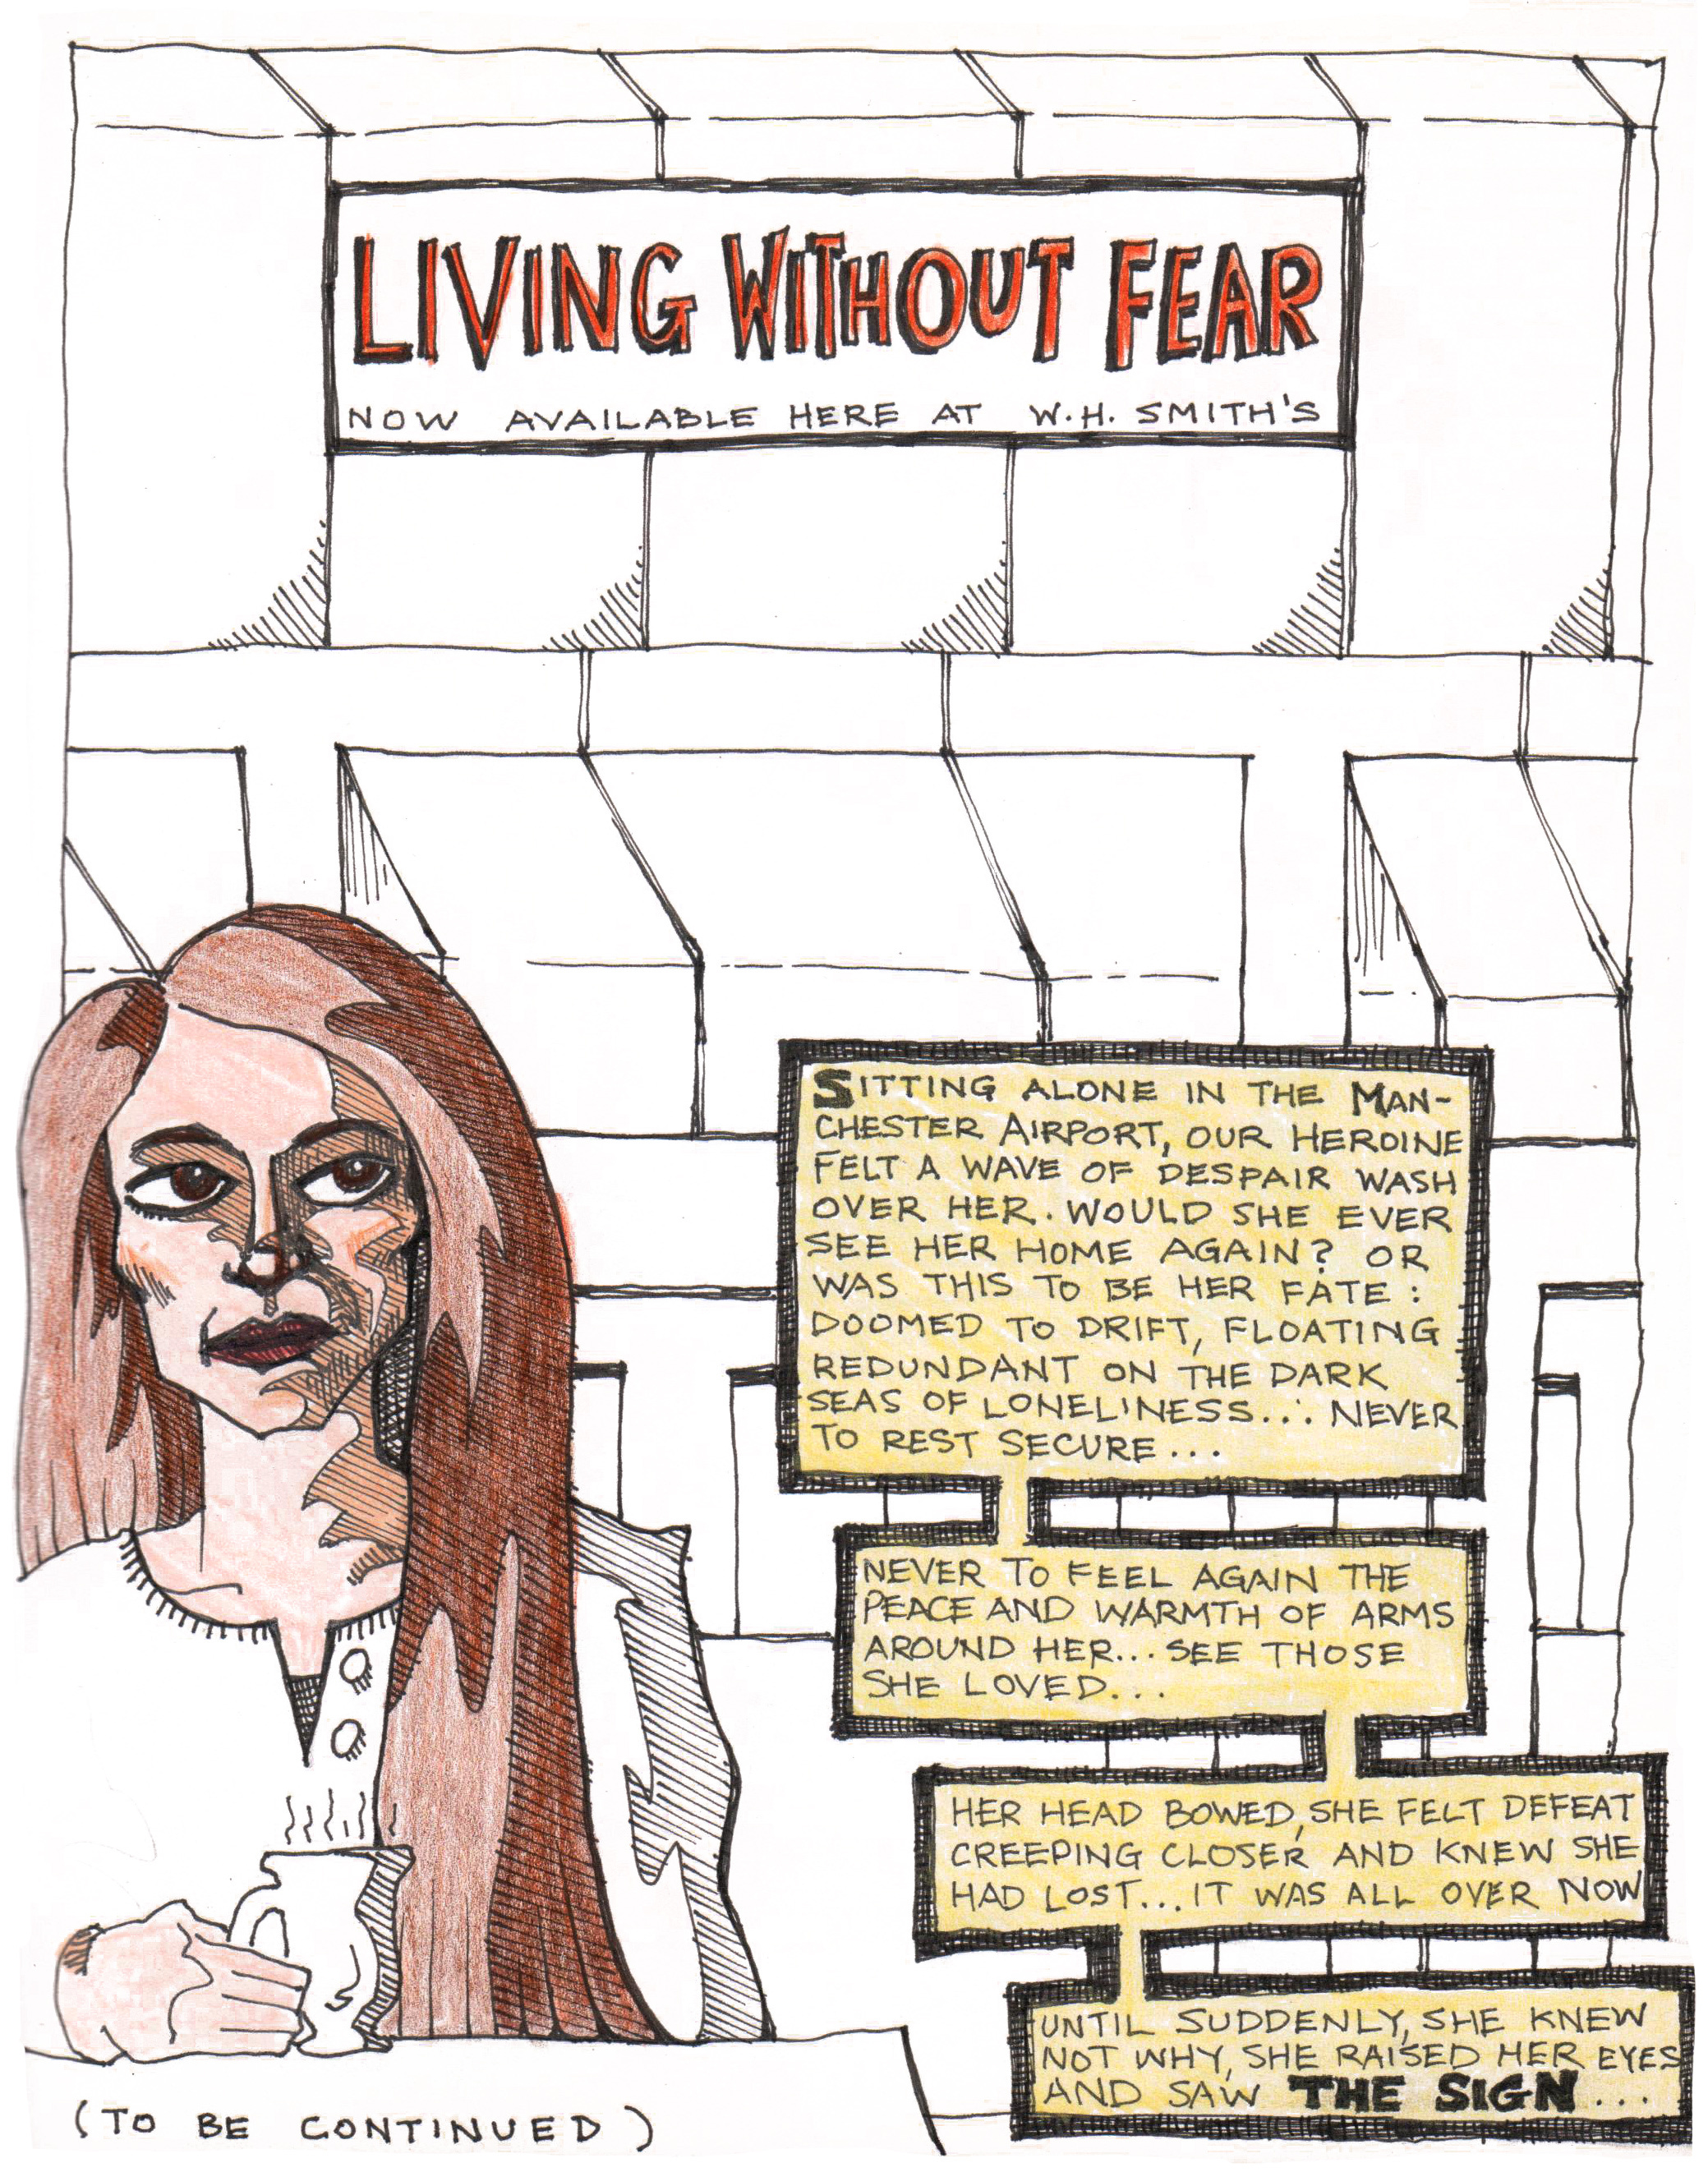 LIVING WITHOUT FEAR
NOW AVAILABLE HERE AT W.H. SMITH'S
SITTING ALONE IN THE MAN-
CHESTER AIRPORT, OUR HEROINE
FELT A WAVE OF DESPAIR WASH
OVER HER. WOULD SHE EVER
SEE HER HOME AGAIN? OR
WAS THIS TO BE HER FATE:
DOOMED TO DRIFT, FLOATING
REDUNDANT ON THE DARK
SEAS OF LONELINESS... NEVER
TO REST SECURE...
NEVER TO FEEL AGAIN THE
PEACE AND WARMTH OF ARMS
AROUND HER... SEE THOSE
SHE LOVED...
HER HEAD BOWED, SHE FELT DEFEAT
CREEPING CLOSER AND KNEW SHE
HAD LOST... IT WAS ALL OVER NOW
UNTIL SUDDENLY, SHE KNEW
NOT WHY, SHE RAISED HER EYES
AND SAW THE SIGN...
(TO BE CONTINUED)